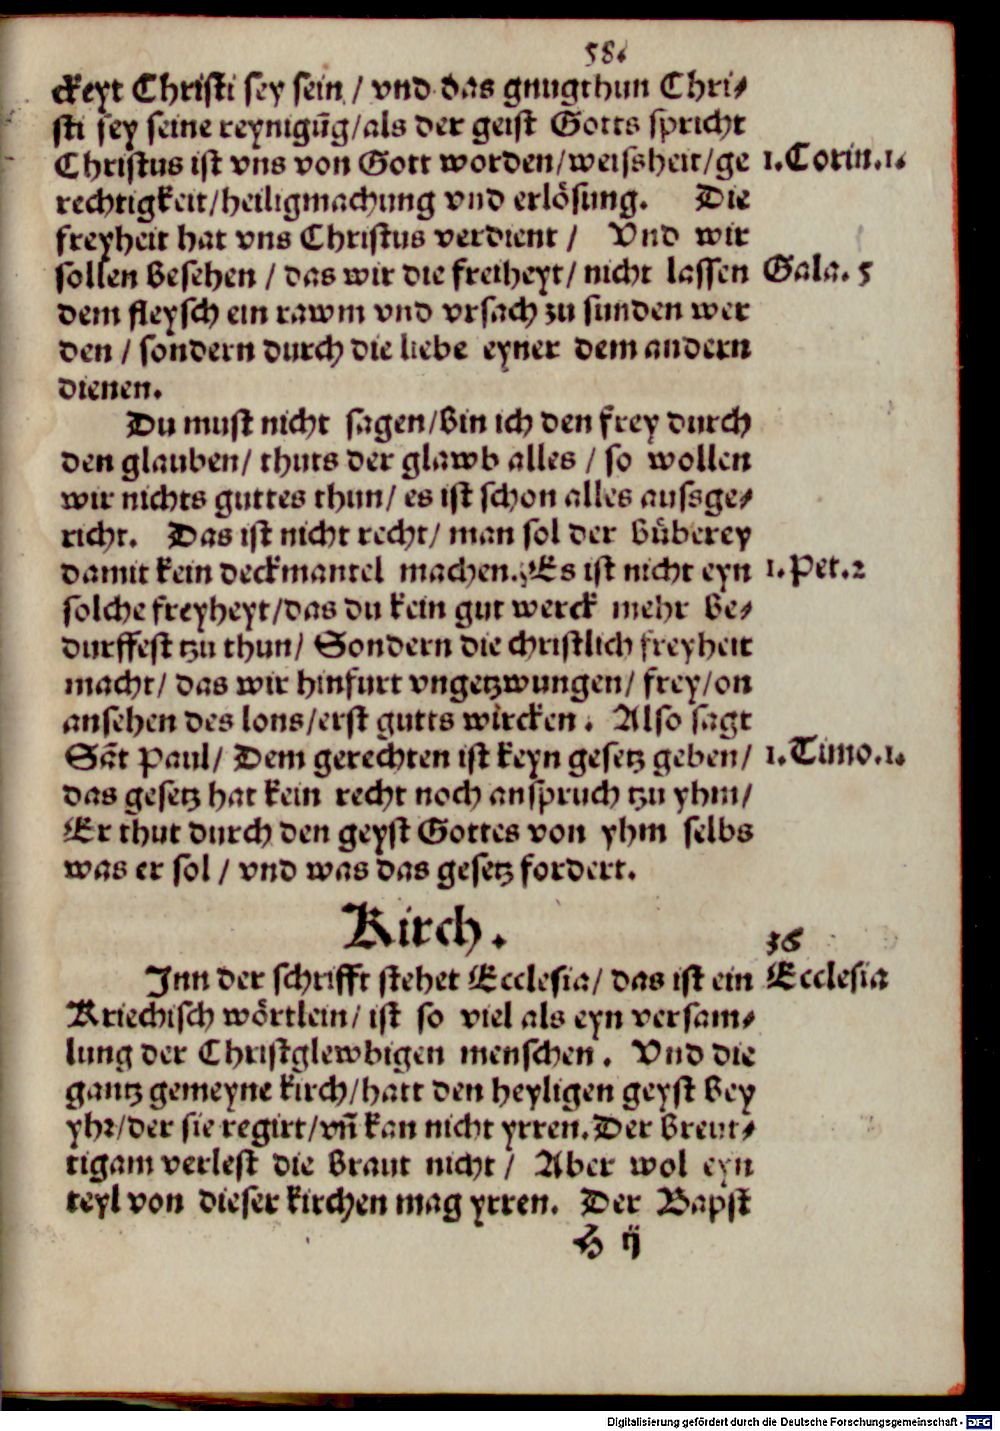 58.
ckeyt Christi sey sein / vnd das gnugthun Chri⸗
sti sey seine reynigũg/als der geist Gotts spricht
Christus ist vns von Gott worden/weissheit/ge 1.Corin.1.
rechtigkeit/heiligmachung vnd erlösung. Die
freyheit hat vns Christus verdient / Vnd wir
sollen besehen / das wir die freiheyt/ nicht lassen Gala. 5
dem fleysch ein rawm vnd vrsach zu sunden wer
den / sondern durch die liebe eyner dem andern
dienen.
Du must nicht sagen/bin ich den frey durch
den glauben/ thuts der glawb alles / so wollen
wir nichts guttes thun/ es ist schon alles aussge⸗
richt. Das ist nicht recht/ man sol der bůberey
damit kein deckmantel machen. Es ist nicht eyn 1.Pet.2
solche freyheyt/das du kein gut werck mehr be⸗
durffest tzu thun/ Sondern die christlich freyheit
macht/ das wir hinfurt vngetzwungen/ frey/on
ansehen des lons/erst gutts wircken. Also sagt
Sãt Paul/ Dem gerechten ist keyn gesetz geben/ 1.Timo.1.
das gesetz hat kein recht noch anspruch tzu yhm/
Er thut durch den geyst Gottes von yhm selbs
was er sol / vnd was das gesetz fordert.
Kirch.
36
Inn der schrifft stehet Ecclesia/ das ist ein Ecclesia
Kriechisch wörtlein/ ist so viel als eyn versam⸗
lung der Christglewbigen menschen. Vnd die
gantz gemeyne kirch/hatt den heyligen geyst bey
yhr/der sie regirt/vñ kan nicht yrren. Der breut⸗
tigam verlest die braut nicht / Aber wol eyn
teyl von dieser kirchen mag yrren. Der Bapst
H ij
Digitalisierung gefördert durch die Deutsche Forschungsgemeinschaft - DFG